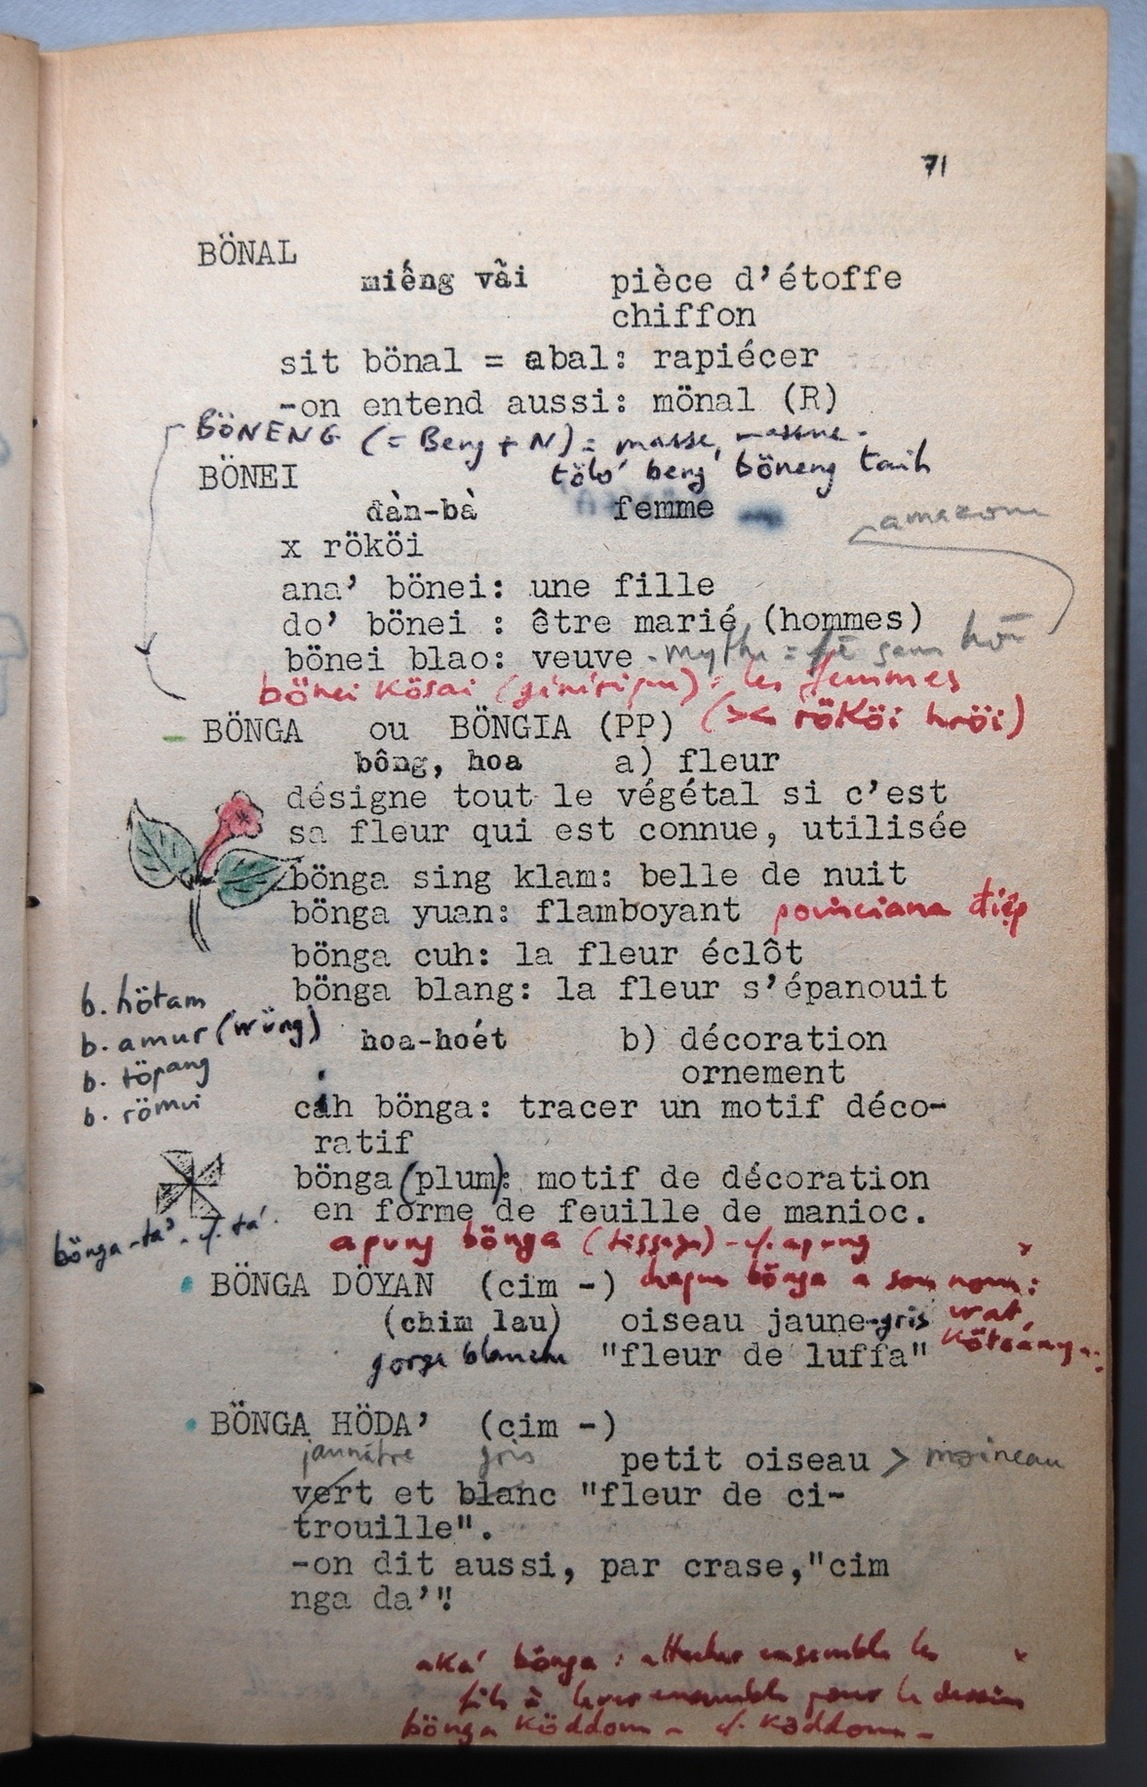 71
BÖNAL
miếng vãi pièce d'étoffe
chiffon
sit bönal = abal: rapiécer
-on entend aussi: mönal (R)
BÖNENG (= Beng + N) = masse, massue.
BÖNEI tölo' beng böneng taih
đàn-bà femme
amazone
x rököi
ana' bönei: une fille
do' bönei : être marié (hommes)
bönei blao: veuve - mythe =
bönei kösai (générique): les femmes
BÖNGA ou BÖNGIA (PP) (>< rököi hröi)
bông, hoa a) fleur
désigne tout le végétal si c'est
sa fleur qui est connue, utilisée
bönga sing klam: belle de nuit
bönga yuan: flamboyant poinciana điệp
bönga cuh: la fleur éclôt
bönga blang: la fleur s'épanouit
b. hötam
b. amur (wüng)
b. töpang
b. römui
hoa-hoét b) décoration
ornement
cih bönga: tracer un motif déco-
ratif
bönga (plum): motif de décoration
en forme de feuille de manioc.
bönga-ta' - cf. ta'.
apung bönga (tissage) - cf. apung
BÖNGA DÖYAN (cim -) chaque bönga a son nom:
(chim lau) oiseau jaune-gris
gorge blanche "fleur de luffa"
BÖNGA HÖDA' (cim -)
jaunâtre gris petit oiseau > moineau
vert et blanc "fleur de ci-
trouille".
-on dit aussi, par crase,"cim
nga da'"!
aka' bönga : attacher ensemble les
fils à lever ensemble pour le dessin
bönga köddom - cf. köddom -